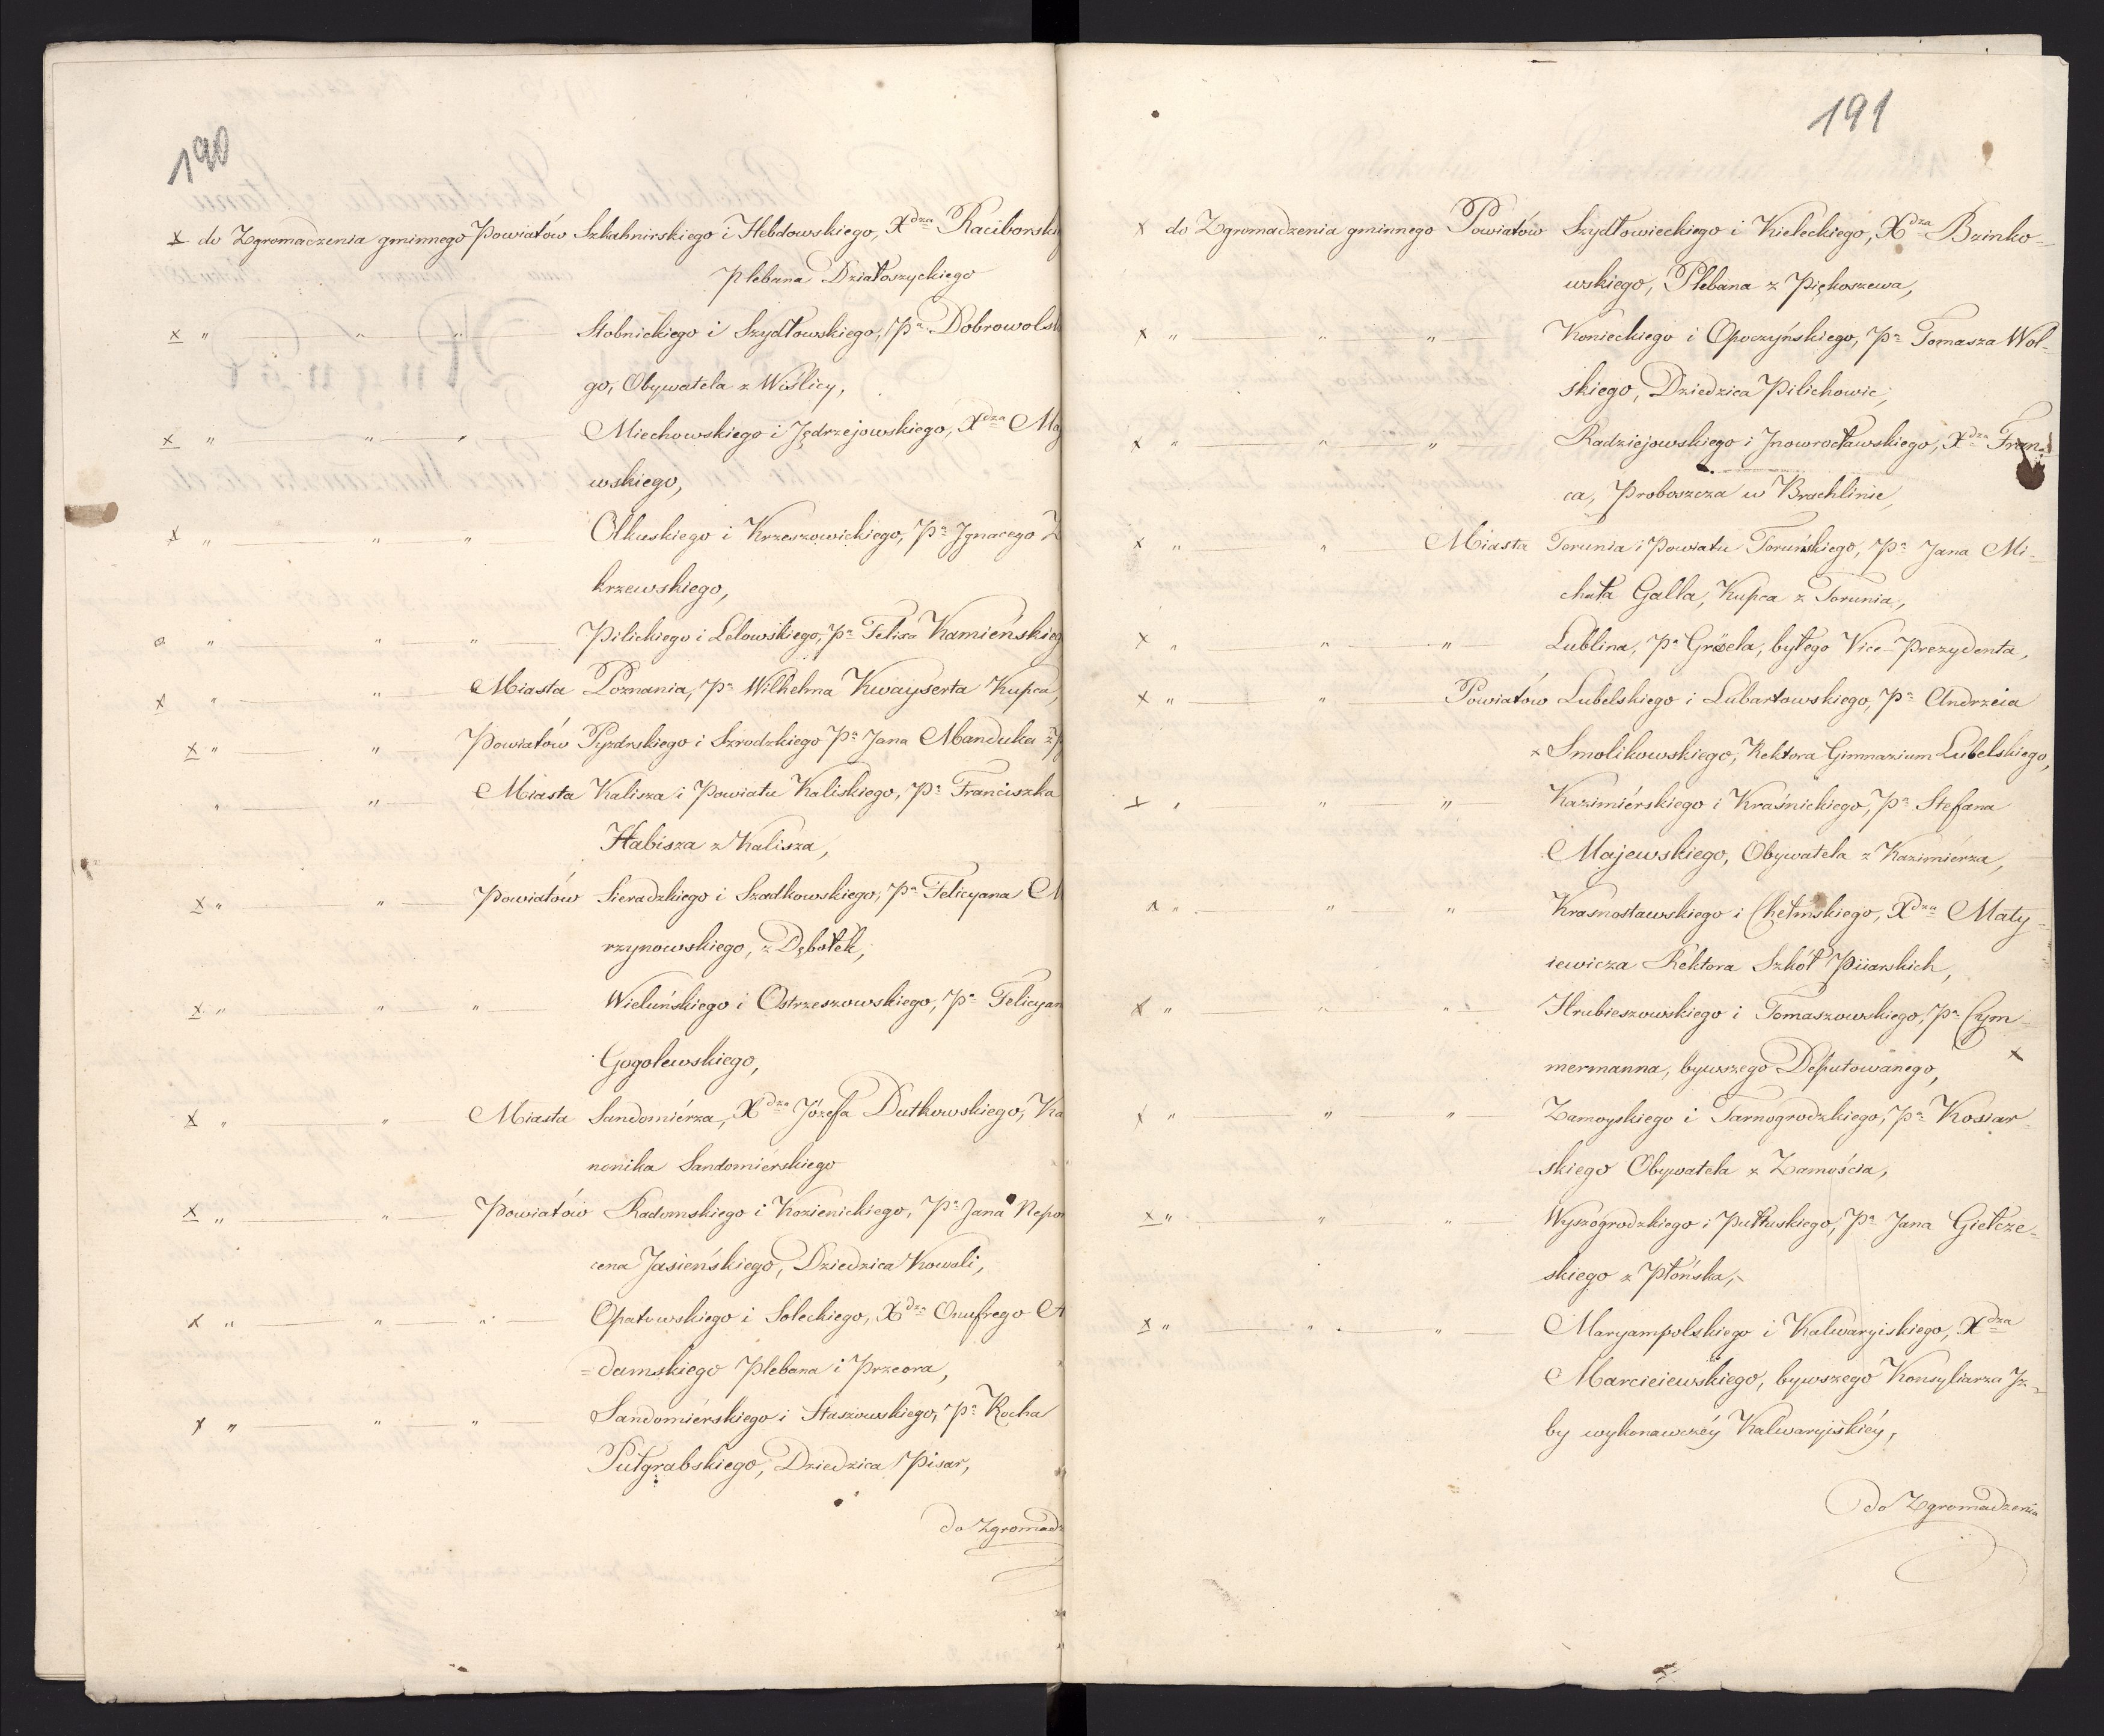 190
x do Zgromadzenia gminnego Powiatów Szkalmirskiego i Hebdowskiego, Xdza Raciborski
Plebana Działoszyckiego
x " " " Stobnickiego i Szydłowskiego, Pa Dobrowolsk
go, Obywatela z Wiślicy,
x " " " Miechowskiego i Jędrzejowskiego, Xdza
wskiego,
x " " " Olkuskiego i Krzeszowickiego, Pa Ignacego Z
krzewskiego,
" " " Pilickiego i Lelowskiego, Pa Felixa Kamieńskieg
x " " Miasta Poznania, Pa Wilhelma Kwayserta Kupca,
x " " Powiatów Pyzdrskiego i Szrodzkiego Pa Jana Manduka z
" " Miasta Kalisza i Powiatu Kaliskiego, Pa Franciszka
Habisza z Kalisza,
x " " Powiatów Sieradzkiego i Szadkowskiego, Pa Felicyana M
rzynowskiego, z Dębołek,
x " " " Wieluńskiego i Ostrzeszowskiego, Pa Felicyan
Gogolewskiego,
x " " Miasta Sandomiérza, Xdza Józefa Dutkowskiego, Ka
nonika Sandomiérskiego
x " " Powiatów Radomskiego i Kozienickiego, Pa Jana Nepom
cena Jasieńskiego, Dziedzica Kowali,
x " " " Opatowskiego i Soleckiego, Xdza Onufrego A
=damskiego Plebana i Przeora,
x " " " Sandomiérskiego i Staszowskiego, Pa Rocha
Putgrabskiego, Dziedzica Pisar,
do Zgromadz
191
x do Zgromadzenia gminnego Powiatów Szydłowieckiego i Kieleckiego, Xdza Bzinko=
wskiego, Plebana z Piękoszewa,
x " " " Konieckiego i Opoczyńskiego, Pa Tomasza Wol=
skiego, Dziedzica Pilichowic,
x " " " Radziejowskiego i Jnowrocławskiego, Xdza
ca, Proboszcza w Brochlinie,
x " " Miasta Torunia i Powiatu Toruńskiego, Pa Jana Mi=
chała Galla, Kupca z Torunia,
x " " " Lublina, Pa byłego Vice-Prezydenta,
x " " Powiatów Lubelskiego i Lubartowskiego, Pa Andrzeia
x Smolikowskiego, Rektora Gimnazium Lubelskiego,
x " " " Kazimiérskiego i Kraśnickiego, Pa Stefana
Majewskiego, Obywatela z Kazimiérza,
x " " " Krasnostawskiego i Chełmskiego, Xdza Maty=
iewicza Rektora Szkół Piiarskich,
x " " " Hrubieszowskiego i Tomaszowskiego, Pa Cym=
mermanna, bywszego Deputowanego, x
x " " " Zamoyskiego i Tarnogrodzkiego, Pa Kosiar=
skiego Obywatela z Zamościa,
x " " " Wyszogrodzkiego i Pułtuskiego, Pa Jana Giełcze=
skiego z Płońska,
x " " " Maryampolskiego i Kalwaryiskiego, Xdza
Marcieiewskiego, bywszego Konsyliarza Jz=
by wykonawczéy Kalwaryiskiéy,
do Zgromadzenia